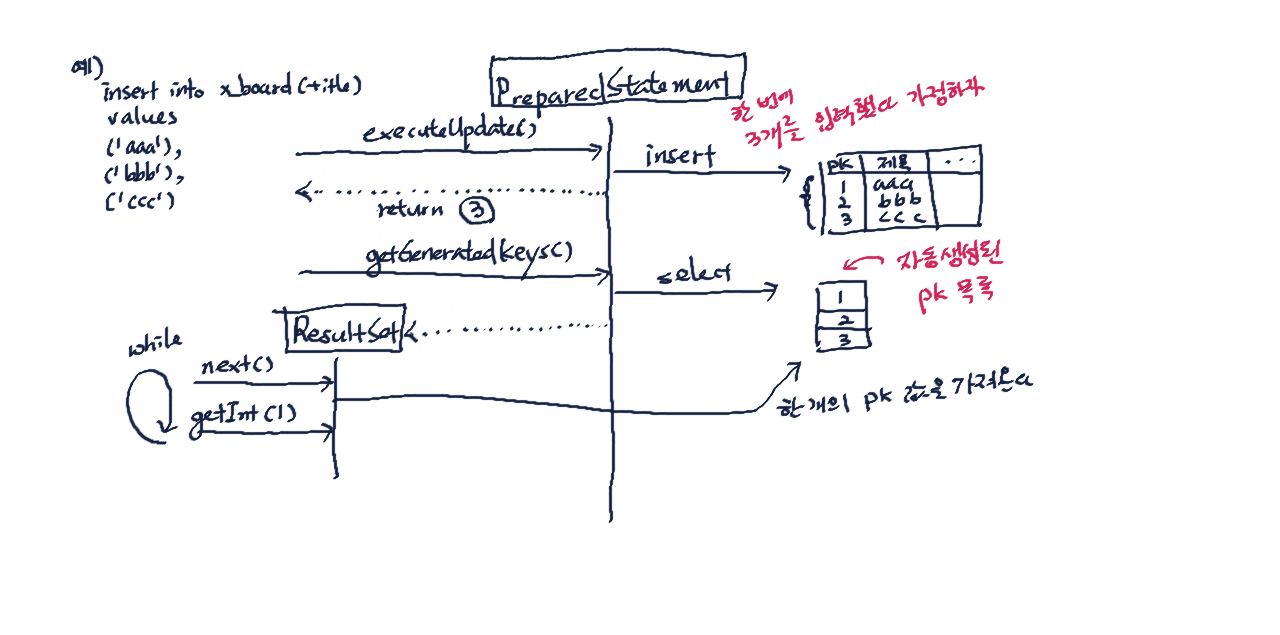 예)
insert into x_board(title)
values
('aaa'),
('bbb'),
('ccc')
PreparedStatement
한 번에
3개를 입력했다 가정하자
executeUpdate()
insert
pk 제목 ...
1 aaa
2 bbb
3 ccc
return ③
getGeneratedKeys()
select
자동생성된
pk 목록
1
2
3
ResultSet
while
next()
getInt(1)
한 개의 pk 값을 가져온다